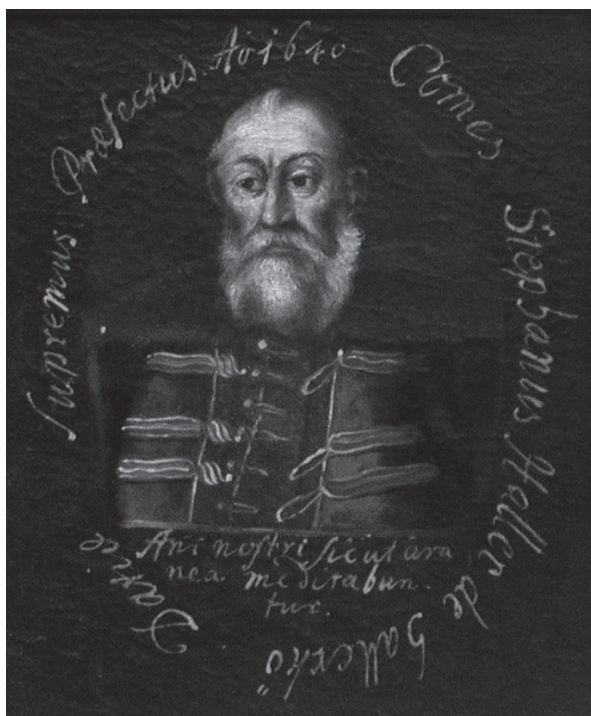 Comes Stephanus Haller de Hallerkő
Supremus Præfectus. Aō 1640
Ani noſtri ſicut ara
nea meditabun.
tur.